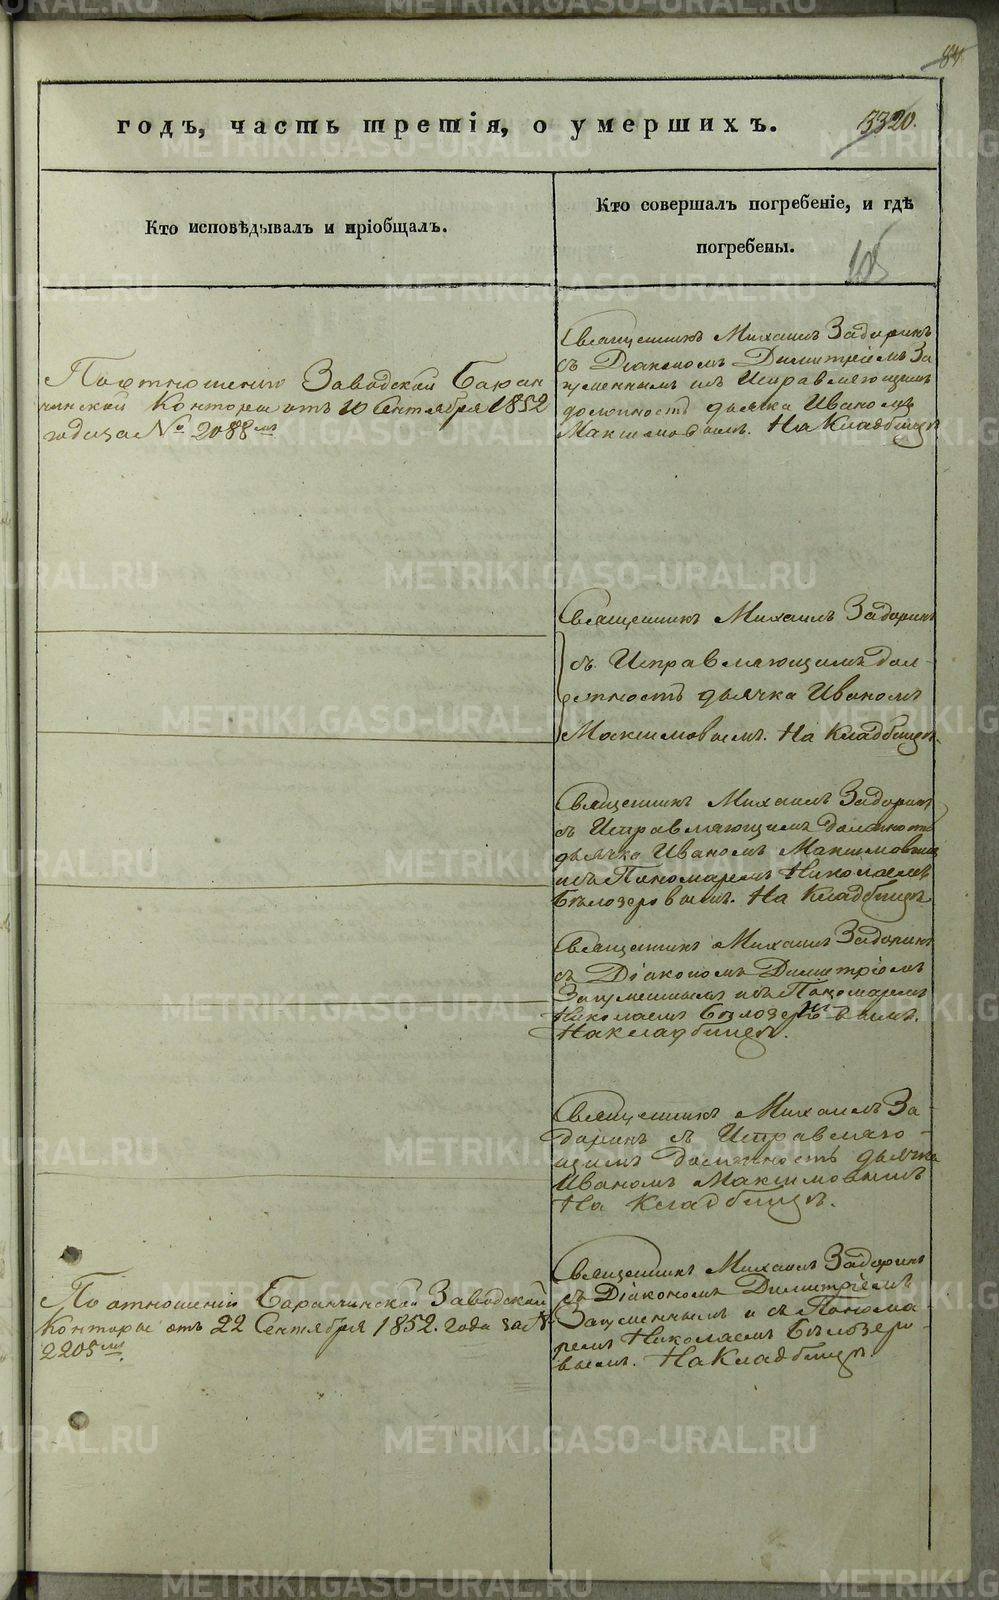 84
годъ, часть третія, о умершихъ.
3320.
Кто исповѣдывалъ и пріобщалъ.
Кто совершалъ погребеніе, и гдѣ
погребены.
По отношенію Заводской Баран
чинской Конторы отъ 10 Сентября 1852
года за № 2088мъ
Священникъ Михаилъ Задоринъ
съ Діакономъ Димитріемъ За
гуменнымъ и съ Исправляющимъ
должность дьячка Иваномъ
Максимовымъ. На Кладбищѣ
Священникъ Михаилъ Задоринъ
съ Исправляющимъ дол-
жность дьячка Иваномъ
Максимовымъ. На Кладбищѣ.
Священникъ Михаилъ Задоринъ
съ Исправляющимъ должность
дьячка Иваномъ Максимовымъ
и съ Пономаремъ Николаемъ
Бѣлозеровымъ. На Кладбищѣ
Священникъ Михаилъ Задоринъ
съ Діакономъ Димитріемъ
Загуменнымъ и съ Пономаремъ
Николаемъ Бѣлозеровымъ.
На кладбищѣ.
Священникъ Михаилъ За-
доринъ съ Исправляю-
щимъ должность дьячка
Иваномъ Максимовымъ
На Кладбищѣ.
По отношенію Баранчинской Заводской
Конторы отъ 22 Сентября 1852. года за №
2205мъ
Священникъ Михаилъ Задоринъ
съ Діакономъ Димитріемъ
Загуменнымъ и съ Понома
ремъ Николаемъ Бѣлозеро-
вымъ. На Кладбищѣ.
METRIKI.GASO-URAL.RU